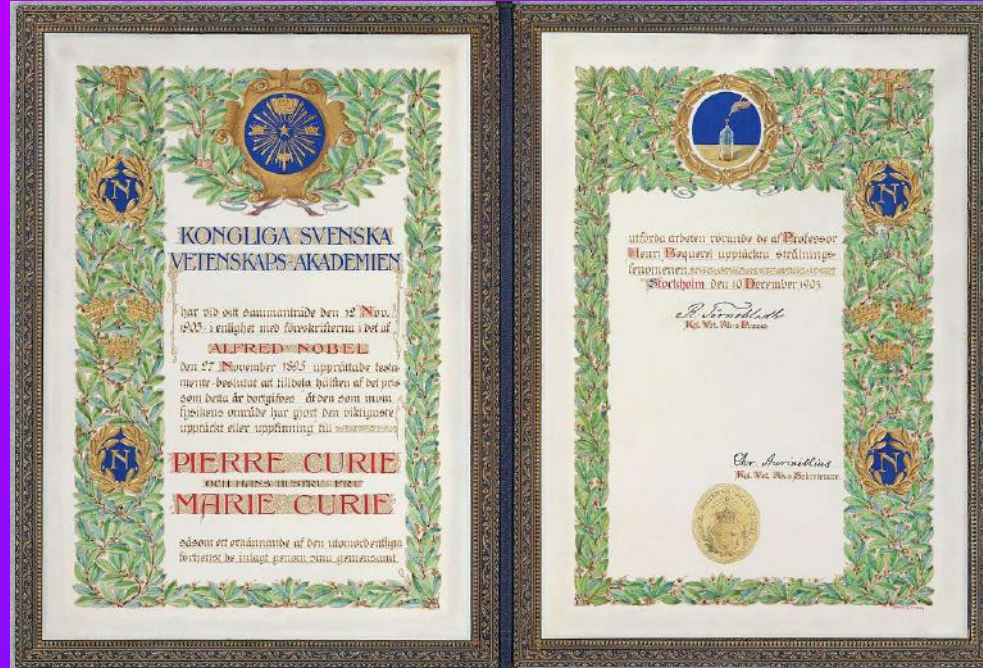 N
N
KONGLIGA SVENSKA
VETENSKAPS-AKADEMIEN
har vid sitt sammanträde den 12 Nov.
1903 i enlighet med föreskrifterna i det af
ALFRED NOBEL
den 27 November 1895 upprättade testa-
mente beslutat att tilldela hälften af det pris
som detta år bortgifves åt den som inom
fysikens område har gjort den viktigaste
upptäckt eller uppfinning till
PIERRE CURIE
OCH HANS HUSTRU FRU
MARIE CURIE
såsom ett erkännande af den utomordentliga
förtjenst de inlagt genom sina gemensamt
N
N
utförda arbeten rörande de af Professor
Henri Bequerel upptäckta strålnings-
fenomenen
Stockholm den 10 December 1903.
R. Törnebladh
Kgl. Vet. Ak:s Præses
Chr. Aurivillius
Kgl. Vet. Ak:s Sekreterare